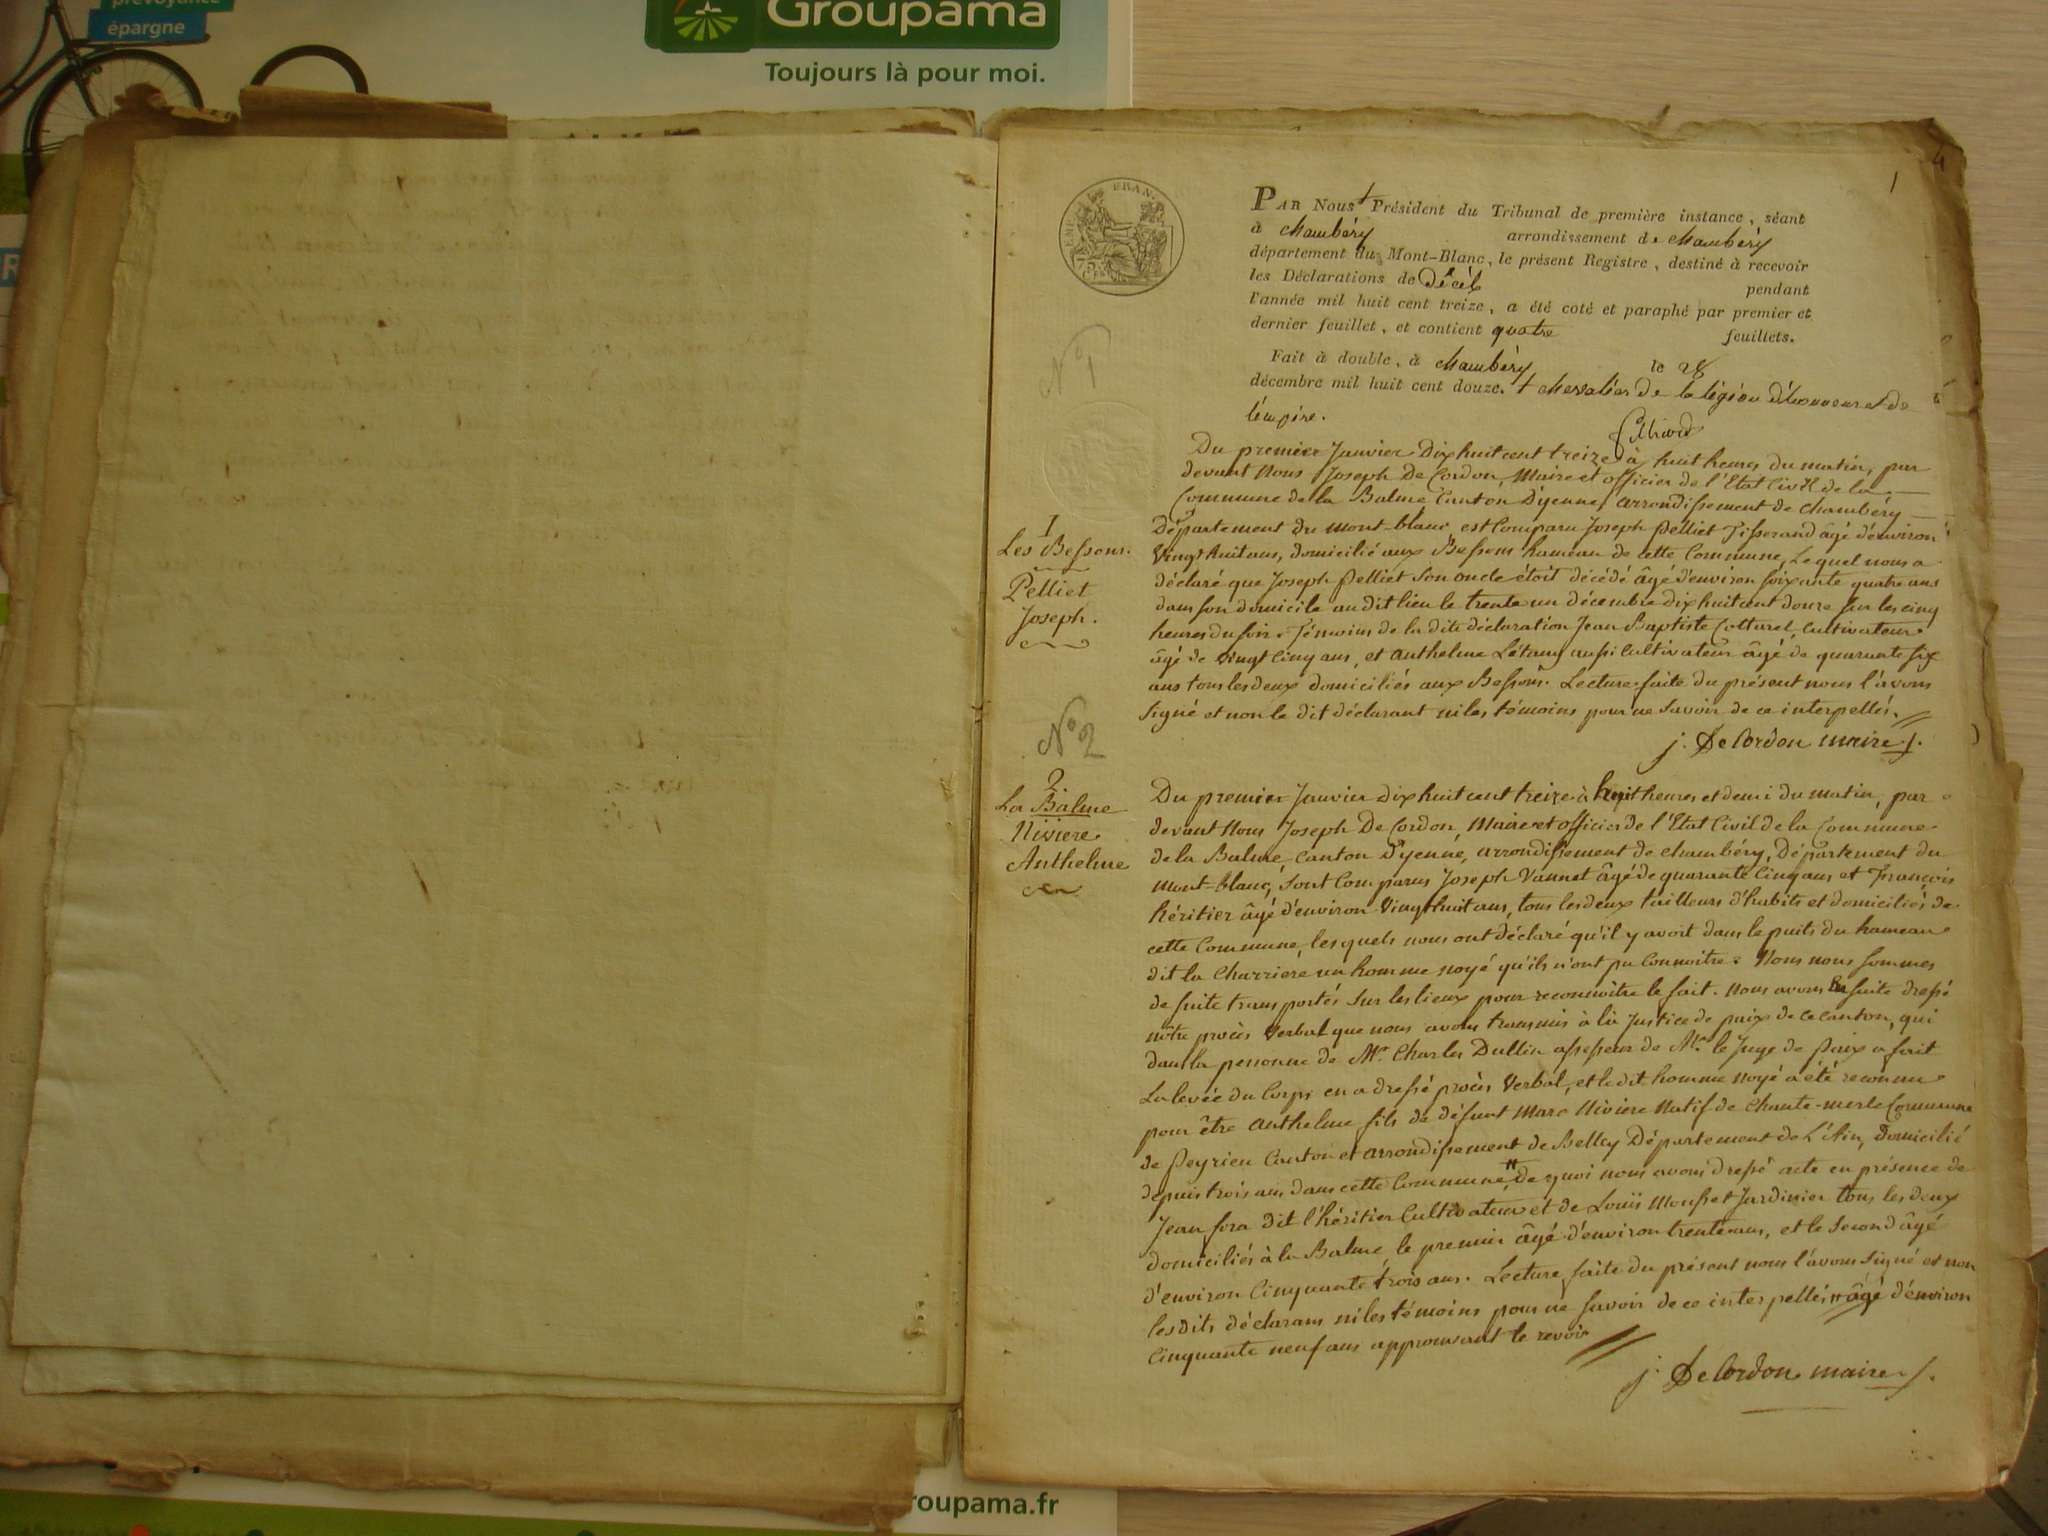 prévoyance
épargne
Groupama
Toujours là pour moi.
1
4
PAR Nous + Président du Tribunal de première instance, séant
à Chambéry arrondissement de Chambéry
département du Mont-Blanc, le présent Registre, destiné à recevoir
les Déclarations de Décès pendant
l'année mil huit cent treize, a été coté et paraphé par premier et
dernier feuillet, et contient quatre feuillets.
Fait à double, à Chambéry le 28
décembre mil huit cent douze. + chevalier de la légion d'honneur et de
l'empire.
N° 1
Du premier Janvier Dixhuit cent treize à huit heures du matin, par
devant Nous Joseph De Cordon, Maire et officier de l'Etat Civil de la
Commune de la Balme Canton D'yenne, arrondissement de Chambéry
1
Les Bessons.
Pelliet
Joseph.
Département du mont-blanc est Comparu Joseph Pelliet Tisserand âgé d'environ
Vingt huit ans, domicilié aux Bessons hameau de cette Commune, Lequel nous a
déclaré que Joseph Pelliet son oncle étoit décédé âgé d'environ soixante quatre ans
dans son domicile au dit lieu le trente un décembre dix huit cent douze sur les cinq
heures du soir. Témoins de la dite déclaration Jean Baptiste Cotturel, Cultivateur
âgé de vingt Cinq ans, et Anthelme Létang aussi Cultivateur âgé de quarante six
ans tous les deux domiciliés aux Bessons. Lecture faite du présent nous l'avons
signé et non le dit déclarant ni les témoins pour ne savoir de ce interpellés.
j. De Cordon maire
N° 2
2
La Balme
Niviere
Anthelme
Du premier Janvier Dixhuit cent treize à huit heures et demi du matin, par
devant Nous Joseph De Cordon, Maire et officier de l'Etat Civil de la Commune
de la Balme, Canton D'yenne, arrondissement de Chambéry, Département du
Mont-blanc, sont Comparus Joseph Vannet âgé de quarante Cinq ans et François
héritier âgé d'environ Vingt huit ans, tous les deux tailleurs d'habits et domiciliés de
cette Commune, lesquels nous ont déclaré qu'il y avoit dans le puits du hameau
dit la Charriere un homme noyé qu'ils n'ont pu Connoitre. Nous nous sommes
de suite transportés sur les lieux pour reconnoitre le fait. Nous avons Ensuite dressé
nôtre procès Verbal que nous avons transmis à la Justice de paix de ce Canton, qui
dans la personne de Mr. Charles Dullin assesseur de Mr. le Juge de Paix a fait
La levée du Corps en a dressé procès Verbal, et le dit homme noyé a été reconnu
pour être Anthelme fils de défunt Marc Niviere Natif de Chante-merle Commune
de Peyrieu Canton et arrondissement de Belley Département de L'Ain, Domicilié
depuis trois ans dans cette Commune, " de quoi nous avons dressé acte en présence de
Jean fora dit l'héritier Cultivateur et de Louis Mousset Jardinier tous les deux
domiciliés à la Balme, le premier âgé d'environ trente ans, et le second âgé
d'environ Cinquante trois ans. Lecture faite du présent nous l'avons signé et non
les dits déclarans ni les témoins pour ne savoir de ce interpellés " âgé d'environ
Cinquante neuf ans approuvant le revoir
j. De Cordon maire
roupama.fr